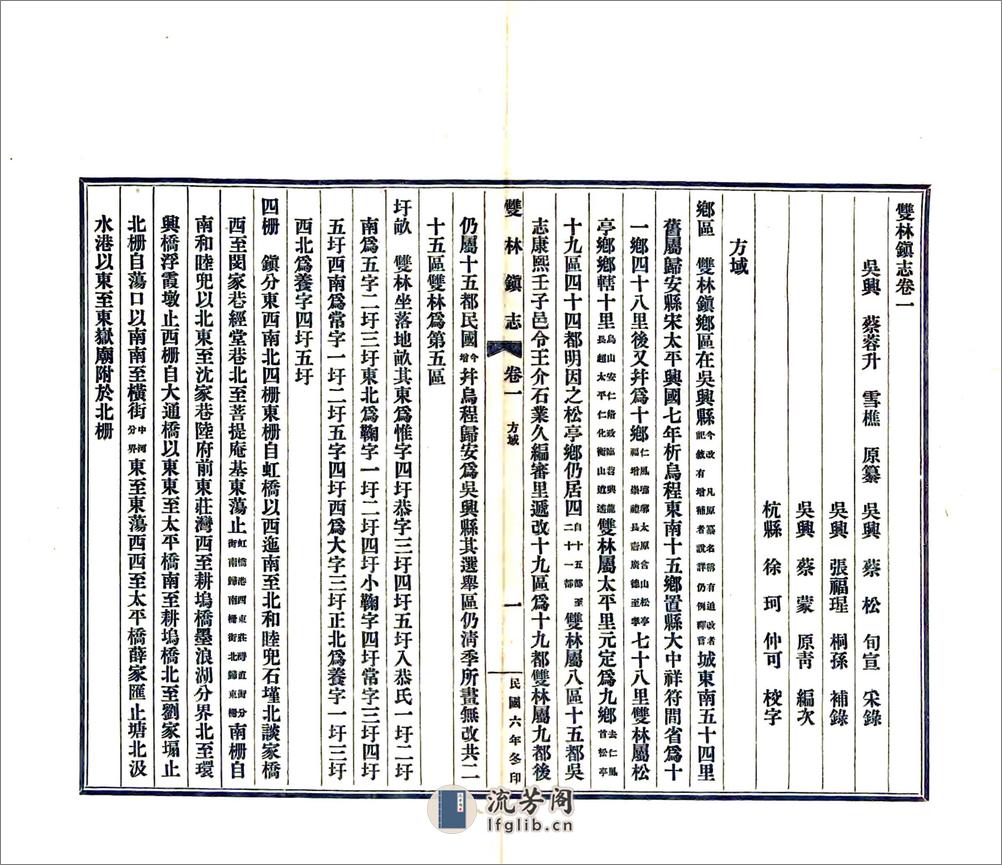 雙林鎮志卷一
吳興　蔡蓉升　雪樵　原纂　吳興　蔡　松　旬宣　采錄
吳興　張福瑆　桐孫　補錄
吳興　蔡　蒙　原靑　編次
杭縣　徐　珂　仲可　校字
方域
鄉區　雙林鎮鄉區在吳興縣城東南五十四里
舊屬歸安縣宋太平興國七年析烏程東南十五鄉置縣大中祥符間省爲十
一鄉四十八里後又幷爲十鄉七十八里雙林屬松
亭鄉鄉轄十里雙林屬太平里元定爲九鄉去仁風首松亭
十九區四十四都明因之松亭鄉仍居四自十五都至二十一都雙林屬八區十五都吳
志康熙壬子邑令王介石業久編審里遞改十九區爲十九都雙林屬九都後
仍屬十五都民國今增幷烏程歸安爲吳興縣其選舉區仍淸季所畫無改共二
十五區雙林爲第五區
雙林鎮志　卷一　方域　一　民國六年冬印
圩畝　雙林坐落地畝其東爲惟字四圩恭字三圩四圩五圩入恭氏一圩二圩
南爲五字二圩三圩東北爲鞠字一圩二圩四圩小鞠字四圩常字三圩四
五圩西南爲常字一圩二圩五字四圩西爲大字三圩正北爲養字一圩三圩
西北爲養字四圩五圩
四柵　鎮分東西南北四柵東柵自虹橋以西迤南至北和睦兜石墐北談家橋
西至閔家巷經堂巷北至菩提庵基東蕩止南柵自
南和睦兜以北東至沈家巷陸府前東莊灣西至耕塢橋墨浪湖分界北至環
興橋浮霞墩止西柵自大通橋以東東至太平橋南至耕塢橋北至劉家塌止
北柵自蕩口以南南至橫街中河分界東至東蕩西西至太平橋薛家匯止塘北汲
水港以東至東嶽廟附於北柵
流芳阁
lfglib.cn